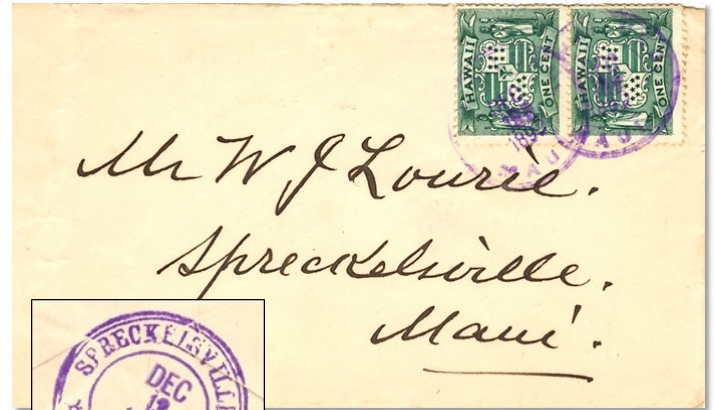 HAWAII ONE CENT
HAWAII ONE CENT
Mr W J Lourie.
Spreckelsville.
Maui.
SPRECKELSVILLE
DEC